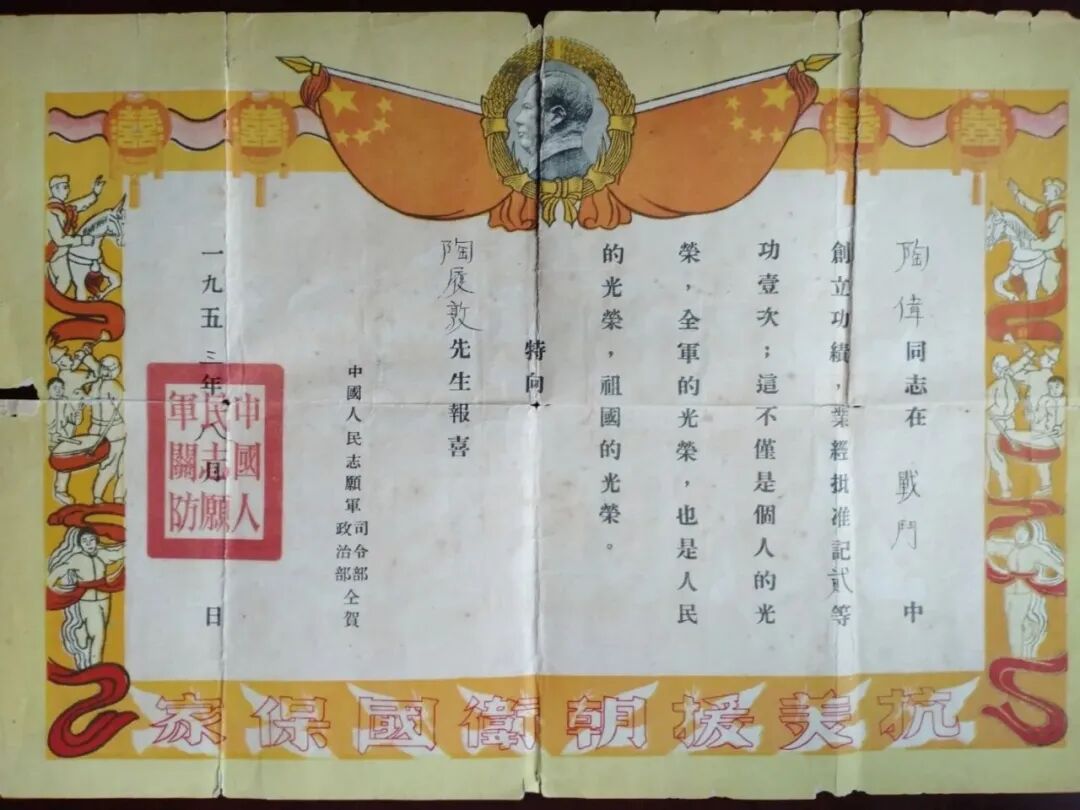 陶偉同志在 戰鬥 中
創立功績，業經批准記貳等
功壹次；這不僅是個人的光
榮，全軍的光榮，也是人民
的光榮，祖國的光榮。
特向
陶履敦先生報喜
中國人民志願軍司令部政治部仝賀
一九五三年八月 日
中國人民志願軍關防
抗美援朝衛國保家
囍 囍 囍 囍